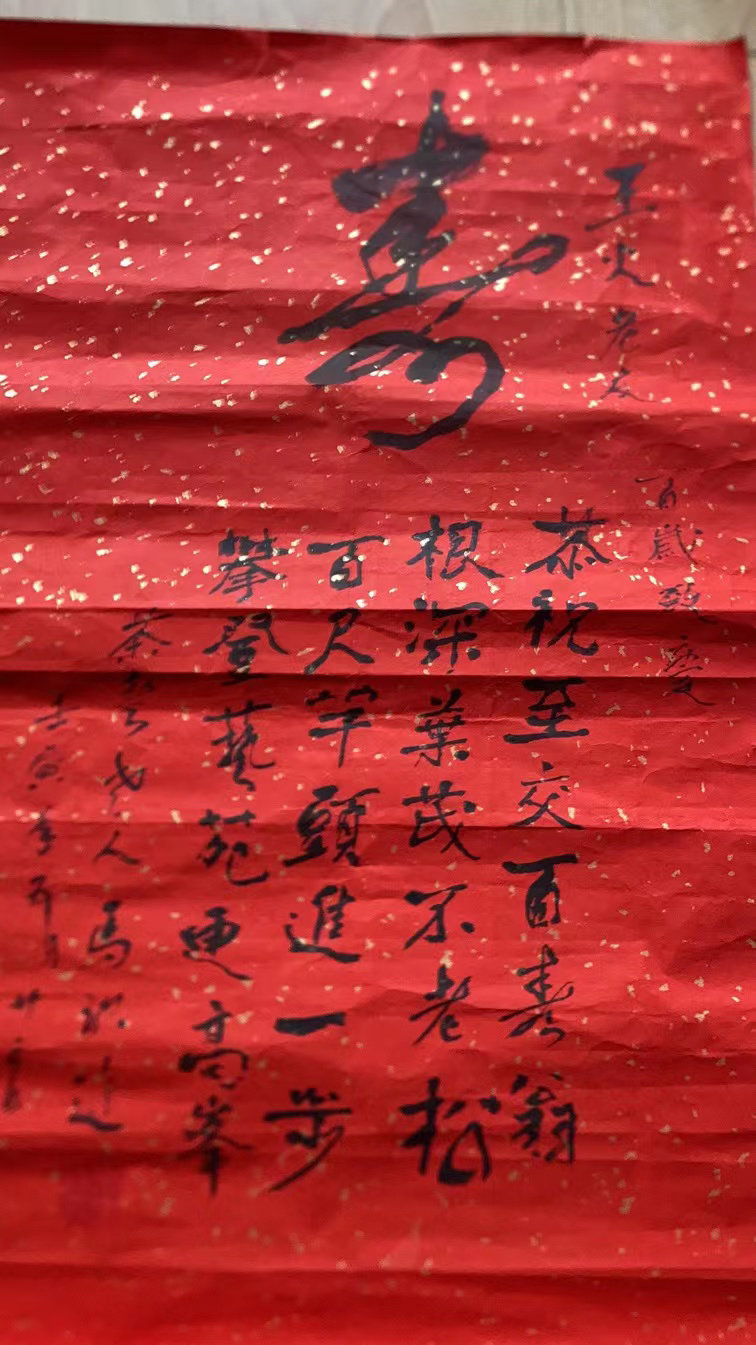 壽
王火老友
百歲熱慶
恭祝至交百壽翁
根深葉茂不老松
百尺竿頭進一步
攀登藝苑更高峯
老人
馬識途
壬寅年五月